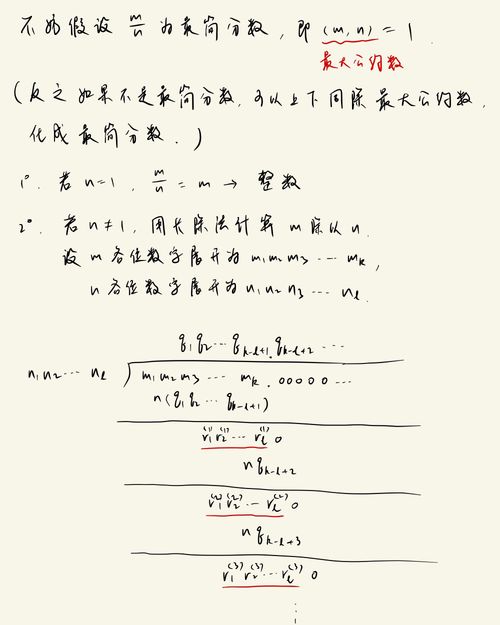 不妨假设 m/n 为最简分数, 即 (m, n) = 1.
最大公约数
(反之如果不是最简分数, 可以上下同除最大公约数,
化成最简分数.)
1°. 若 n=1, m/n = m → 整数
2°. 若 n≠1, 用长除法计算 m 除以 n.
设 m 各位数字展开为 m₁m₂m₃ ⋯ mₖ,
n 各位数字展开为 n₁n₂n₃ ⋯ nₗ.
q₁q₂⋯qₖ₋ₗ₊₁.qₖ₋ₗ₊₂ ⋯
n₁n₂⋯ nₗ ) m₁m₂m₃ ⋯ mₖ . 00000 ⋯
n(q₁q₂⋯qₖ₋ₗ₊₁)
r₁⁽¹⁾r₂⁽¹⁾⋯ rₗ⁽¹⁾ 0
n qₖ₋ₗ₊₂
r₁⁽²⁾r₂⁽²⁾⋯ rₗ⁽²⁾ 0
n qₖ₋ₗ₊₃
r₁⁽³⁾ r₂⁽³⁾⋯ rₗ⁽³⁾ 0
⋮